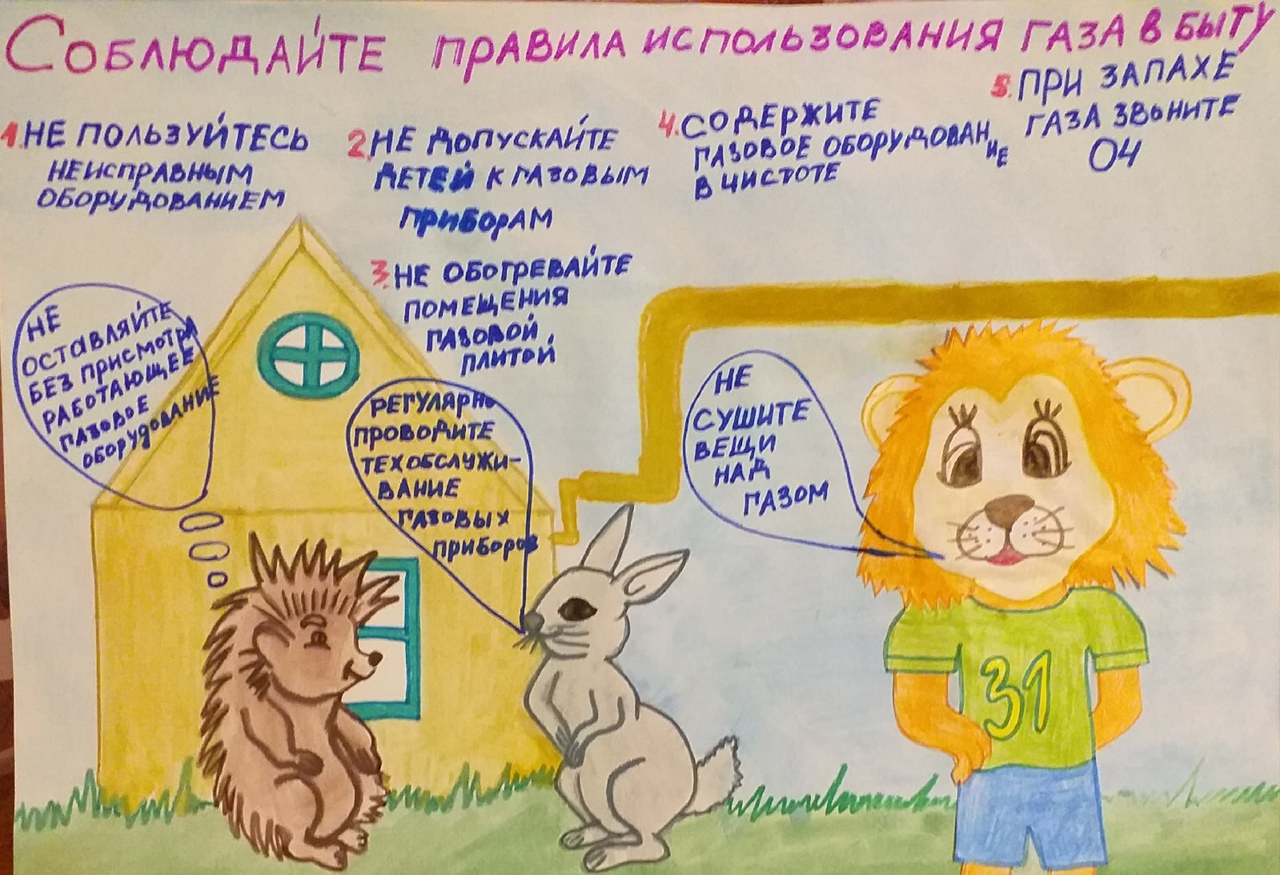 СОБЛЮДАЙТЕ ПРАВИЛА ИСПОЛЬЗОВАНИЯ ГАЗА В БЫТУ
1. НЕ ПОЛЬЗУЙТЕСЬ
НЕИСПРАВНЫМ
ОБОРУДОВАНИЕМ
2. НЕ ДОПУСКАЙТЕ
ДЕТЕЙ К ГАЗОВЫМ
ПРИБОРАМ
3. НЕ ОБОГРЕВАЙТЕ
ПОМЕЩЕНИЯ
ГАЗОВОЙ
ПЛИТОЙ
4. СОДЕРЖИТЕ
ГАЗОВОЕ ОБОРУДОВАНИЕ
В ЧИСТОТЕ
5. ПРИ ЗАПАХЕ
ГАЗА ЗВОНИТЕ
04
НЕ
ОСТАВЛЯЙТЕ
БЕЗ ПРИСМОТРА
РАБОТАЮЩЕЕ
ГАЗОВОЕ
ОБОРУДОВАНИЕ
РЕГУЛЯРНО
ПРОВОДИТЕ
ТЕХОБСЛУЖИ-
ВАНИЕ
ГАЗОВЫХ
ПРИБОРОВ
НЕ
СУШИТЕ
ВЕЩИ
НАД
ГАЗОМ
31